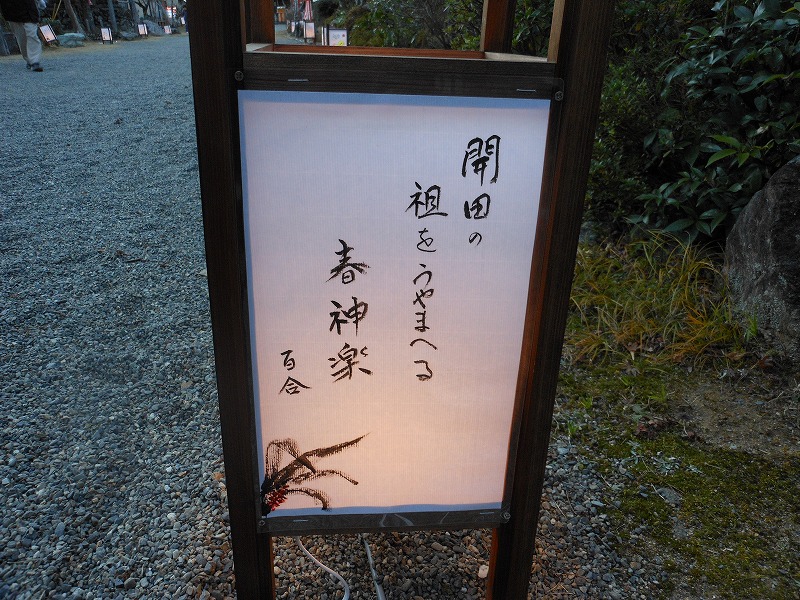 開田の
祖をうやまへる
春神楽
百合